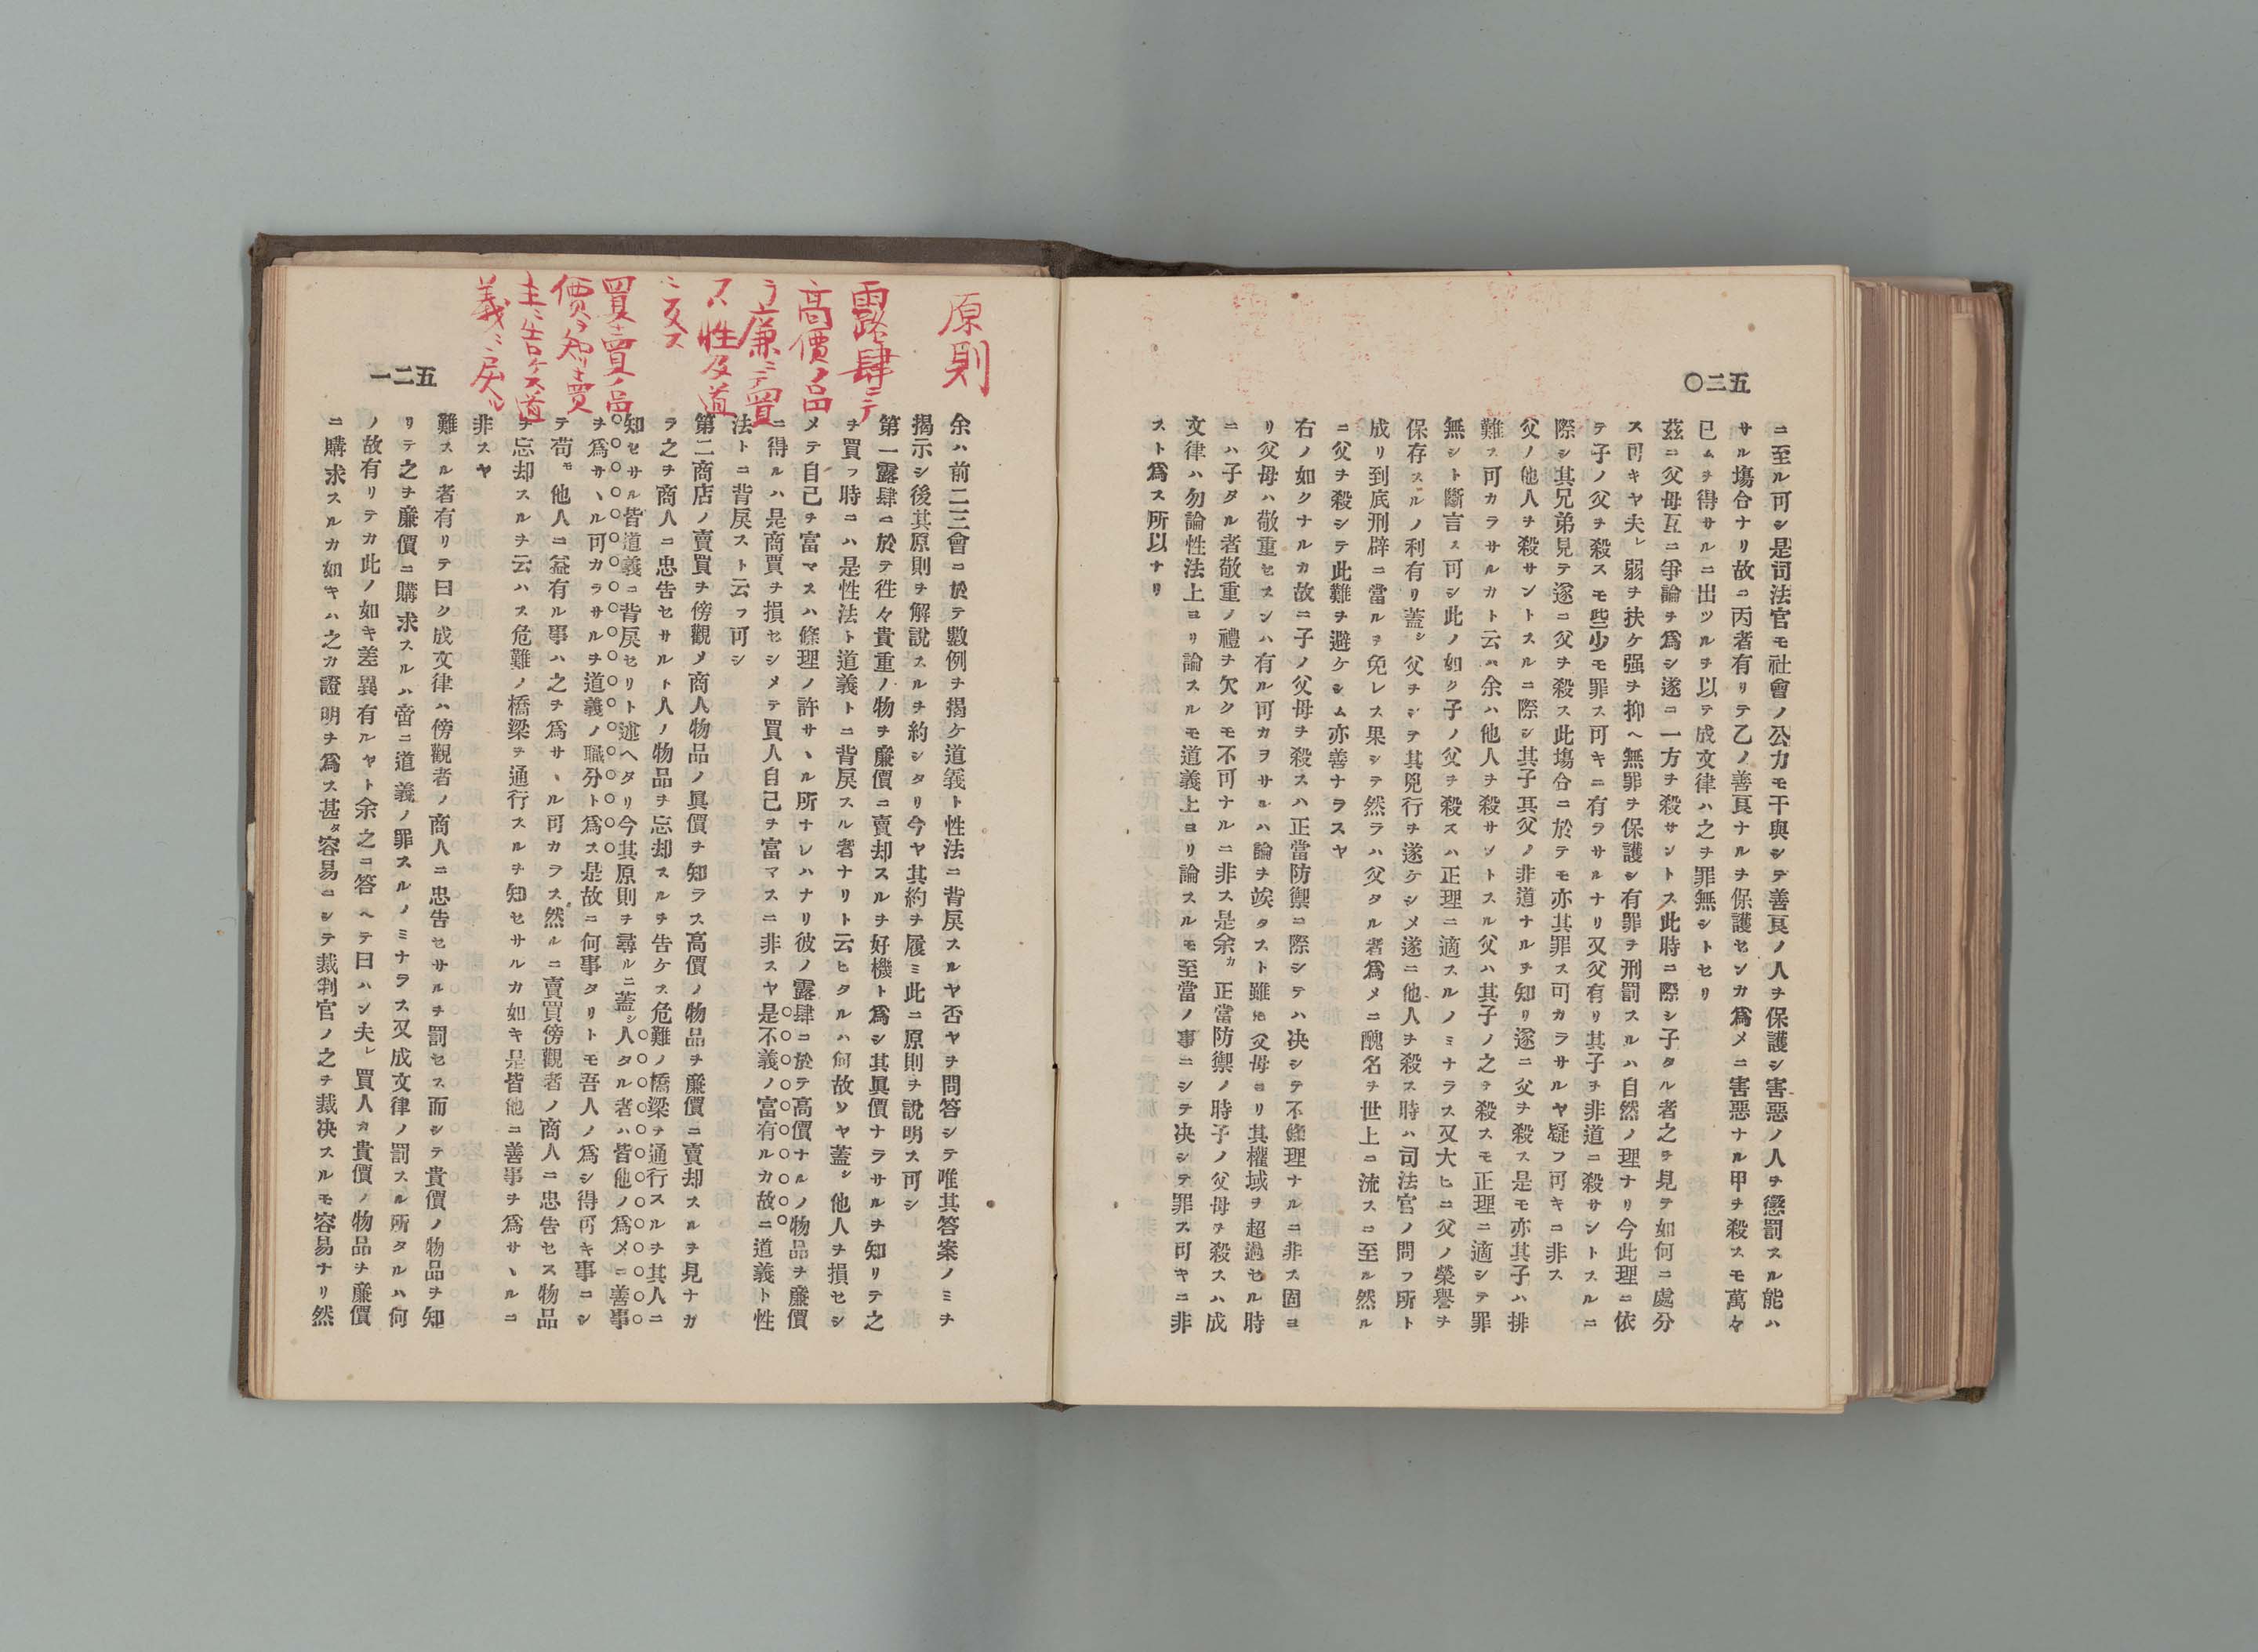 五二〇
ニ至ル可シ是司法官モ社會ノ公力モ干與シテ善良ノ人ヲ保護シ害惡ノ人ヲ懲罰スル能ハ
サル塲合ナリ故ニ丙者有リテ乙ノ善良ナルヲ保護センカ爲メニ害惡ナル甲ヲ殺スモ萬々
已ムヲ得サルニ出ツルヲ以テ成文律ハ之ヲ罪無シトセリ
茲ニ父母互ニ爭論ヲ爲シ遂ニ一方ヲ殺サントス此時ニ際シ子タル者之ヲ見テ如何ニ處分
ス可キヤ夫レ弱ヲ扶ケ强ヲ抑ヘ無罪ヲ保護シ有罪ヲ刑罰スルハ自然ノ理ナリ今此理ニ依
テ子ノ父ヲ殺スモ些少モ罪ス可キニ有ラサルナリ又父有リ其子ヲ非道ニ殺サントスルニ
際シ其兄弟見テ遂ニ父ヲ殺ス此塲合ニ於テモ亦其罪ス可カラサルヤ疑フ可キニ非ス
父ノ他人ヲ殺サントスルニ際シ其子其父ノ非道ナルヲ知リ遂ニ父ヲ殺ス是モ亦其子ハ排
難ス可カラサルカト云ハ余ハ他人ヲ殺サントスル父ハ其子ノ之ヲ殺スモ正理ニ適シテ罪
無シト斷言ス可シ此ノ如ク子ノ父ヲ殺スハ正理ニ適スルノミナラス又大ヒニ父ノ榮譽ヲ
保存スルノ利有リ蓋シ父ヲシテ其兇行ヲ遂ケシメ遂ニ他人ヲ殺ス時ハ司法官ノ問フ所ト
成リ到底刑辟ニ當ルヲ免レス果シテ然ラハ父タル者爲メニ醜名ヲ世上ニ流スニ至ル然ル
ニ父ヲ殺シテ此難ヲ避ケシム亦善ナラスヤ
右ノ如クナルカ故ニ子ノ父母ヲ殺スハ正當防禦ニ際シテハ决シテ不條理ナルニ非ス固ヨ
リ父母ハ敬重セスンハ有ル可カヲサルハ論ヲ竢タスト雖㐧父母ヨリ其權域ヲ超過セル時
ニハ子タル者敬重ノ禮ヲ欠クモ不可ナルニ非ス是余カ正當防禦ノ時子ノ父母ヲ殺スハ成
文律ハ勿論性法上ヨリ論スルモ道義上ヨリ論スルモ至當ノ事ニシテ决シテ罪ス可キニ非
スト爲ス所以ナリ
原則
露肆ニテ
高價ノ品
ヲ廉ニテ買
フハ性及道
ニ反ス
買主賣ノ品
價ヲ知リ賣
主ニ告ケス道
義ニ戻ル
五二一
余ハ前二三會ニ於テ數例ヲ揭ケ道義ト性法ニ背戾スルヤ否ヤヲ問答シテ唯其答案ノミヲ
揭示シ後其原則ヲ解說スルヲ約シタリ今ヤ其約ヲ履ミ此ニ原則ヲ說明ス可シ
第一露肆ニ於テ徃々貴重ノ物ヲ廉價ニ賣却スルヲ好機ト爲シ其眞價ナラサルヲ知リテ之
ヲ買フ時ニハ是性法ト道義トニ背戾スル者ナリト云ヒタルハ何故ソヤ蓋シ他人ヲ損セシ
メテ自己ヲ富マスハ條理ノ許サヽル所ナレハナリ彼ノ露肆ニ於テ高價ナルノ物品ヲ廉價
ニ得ルハ是商賈ヲ損セシメテ買人自己ヲ富マスニ非スヤ是不義ノ富有ルカ故ニ道義ト性
法トニ背戾スト云フ可シ
第二商店ノ賣買ヲ傍觀メ商人物品ノ眞價ヲ知ラス高價ノ物品ヲ廉價ニ賣却スルヲ見ナガ
ラ之ヲ商人ニ忠告セサルト人ノ物品ヲ忘却スルヲ告ケス危難ノ橋梁ヲ通行スルヲ其人ニ
知セサル皆道義ニ背戾セリト述ヘタリ今其原則ヲ尋ルニ蓋シ人タル者ハ皆他ノ爲メニ善事
ヲ爲サヽル可カラサルヲ道義ノ職分ト爲ス是故ニ何事タリトモ吾人ノ爲シ得可キ事ニシ
テ苟モ他人ニ益有ル事ハ之ヲ爲サヽル可カラス然ルニ賣買傍觀者ノ商人ニ忠吿セス物品
ヲ忘却スルヲ云ハス危難ノ橋梁ヲ通行スルヲ知セサルカ如キ是皆他ニ善事ヲ爲サヽルニ
非スヤ
難スル者有リテ曰ク成文律ハ傍觀者ノ商人ニ忠告セサルヲ罰セス而シテ貴價ノ物品ヲ知
リテ之ヲ廉價ニ購求スルハ啻ニ道義ノ罪スルノミナラス又成文律ノ罰スル所タルハ何
ノ故有リテカ此ノ如キ差異有ルヤト余之ニ答ヘテ曰ハン夫レ買人カ貴價ノ物品ヲ廉價
ニ購求スルカ如キハ之カ證明ヲ爲ス甚タ容易ニシテ裁判官ノ之ヲ裁决スルモ容易ナリ然